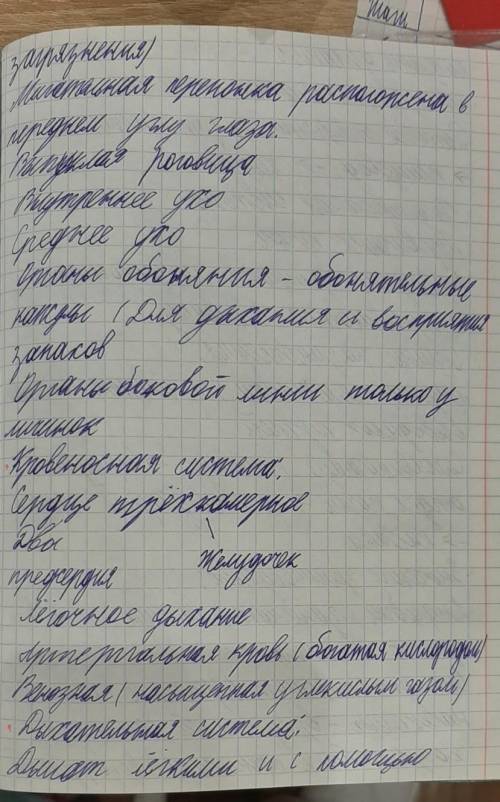 таш
загрязнения)
Мигательная перепонка расположена в
переднем углу глаза.
Выпуклая роговица
Внутреннее ухо
Среднее ухо
Органы обоняния - обонятельные
(Для дыхания и восприятия
запахов
Органы боковой линии только у
личинок
Кровеносная система:
Сердце трёхкамерное
Два
Желудочек
предсердия
Лёгочное дыхание
Артериальная кровь (богатая кислородом)
Венозная (насыщенная углекислым газом)
Дыхательная система:
Дышат лёгкими и с помощью